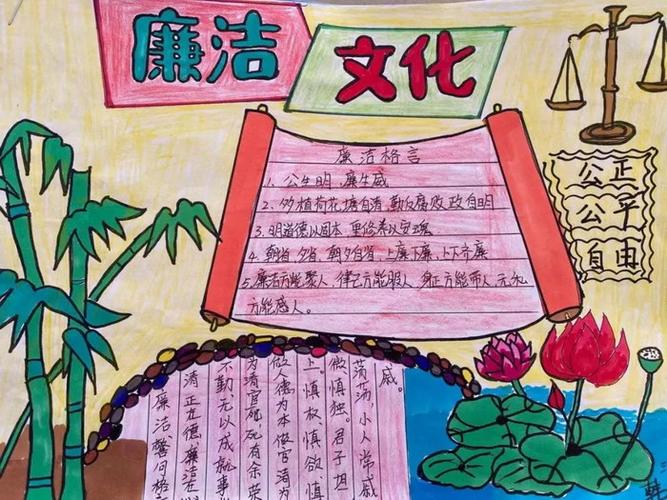 廉洁
文化
廉洁格言
1、公生明,廉生威
2、多植荷花塘自清,勤反腐败政自明
3、明道德以固本,重修养以
4、朝省夕省,朝夕自省,上廉下廉,上下齐廉
5、廉洁方能聚人,律己方能服人,身正方能带人,无私
方能感人。
公正
公平
自由
戚。
荡荡,小人常戚
微慎独。君子坦
上慎权慎欲慎
做德为本做官清为
为清官死,死有余荣
不勤无以成就事
清正在德廉洁
廉洁警句格